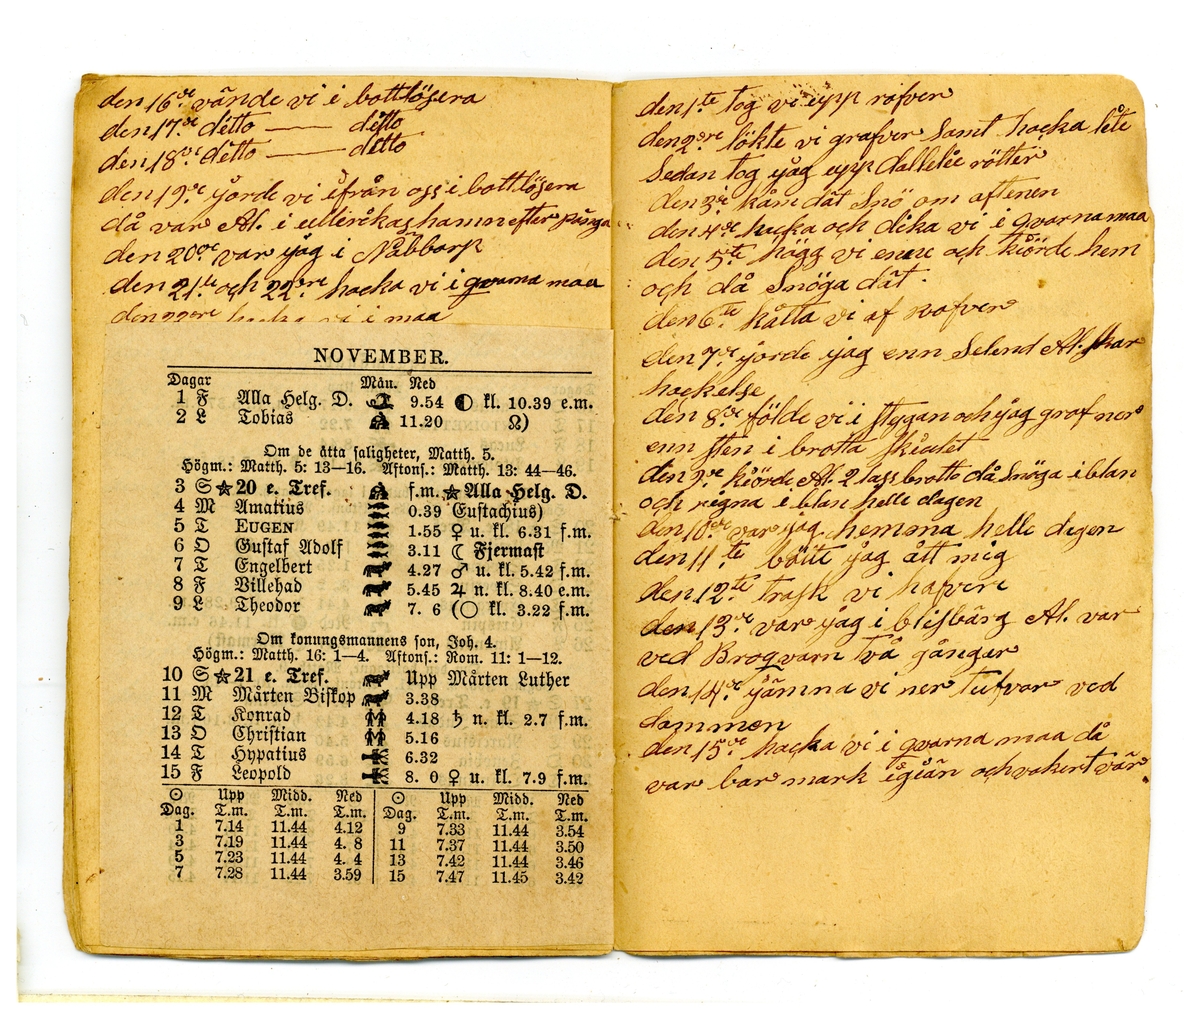 den 16de vände vi i bottlösera
den 17de detto — detto
den 18de detto — detto
den 19de jorde vi ifrån oss i bottlösera
då var Al. i hamn efter pänga
den 20de var jag i Näbbarp
den 21te och 22dre hacka vi i qvarna maa
hacka vi i maa
NOVEMBER.
Dagar Mån. Ned
1 F Alla Helg. D. 9.54 kl. 10.39 e.m.
2 L Tobias 11.20 ☊)
Om de åtta saligheter, Matth. 5.
Högm.: Matth. 5: 13—16. Aftons.: Matth. 13: 44—46.
3 S ★ 20 e. Tref. f.m. ★ Alla Helg. D.
4 M Amatius 0.39 Eustachius)
5 T EUGEN 1.55 ♀ u. kl. 6.31 f.m.
6 O Gustaf Adolf 3.11 ☾ Fjermast
7 T Engelbert 4.27 ♂ u. kl. 5.42 f.m.
8 F Villehad 5.45 ♃ n. kl. 8.40 e.m.
9 L Theodor 7. 6 (○ kl. 3.22 f.m.
Om konungsmannens son, Joh. 4.
Högm.: Matth. 16: 1—4. Aftons.: Rom. 11: 1—12.
10 S ★ 21 e. Tref. Upp Mårten Luther
11 M Mårten Biskop 3.38
12 T Konrad 4.18 ♄ n. kl. 2.7 f.m.
13 O Christian 5.16
14 T Hypatius 6.32
15 F Leopold 8. 0 ♀ u. kl. 7.9 f.m.
☉ Upp Midd. Ned ☉ Upp Midd. Ned
Dag. T.m. T.m. T.m. Dag. T.m. T.m. T.m.
1 7.14 11.44 4.12 9 7.33 11.44 3.54
3 7.19 11.44 4. 8 11 7.37 11.44 3.50
5 7.23 11.44 4. 4 13 7.42 11.44 3.46
7 7.28 11.44 3.59 15 7.47 11.45 3.42
den 1te tog vi upp rofver
den 2dre lökte vi grafver Samt hacka lite
Sedan tog jag upp rötter
den 3de kåm dät Snö om aftenen
den 4de hacka och dika vi i qvarna maa
den 5te högg vi enne och kiörde hem
och då Snöga dät
den 6te håtta vi af rofver
den 7de jorde jag enn Selend Al. skar
hackelse
den 8de földe vi i stygan och jag graf ner
enn sten i brotta
den 9de kiörde Al. 2 lass brotto då Snöga iblan
och rigna iblan helle dagen
den 10de var jag hemma helle dagen
den 11te bötte jag ått mig
den 12te trask vi hafvere
den 13de var jag i blisbärg Al. var
ved Broqvarn två gånger
den 14de jämna vi ner tufvor ved
dammen
den 15de hacka vi i qvarna maa då
var bar mark igiän och vakert vär